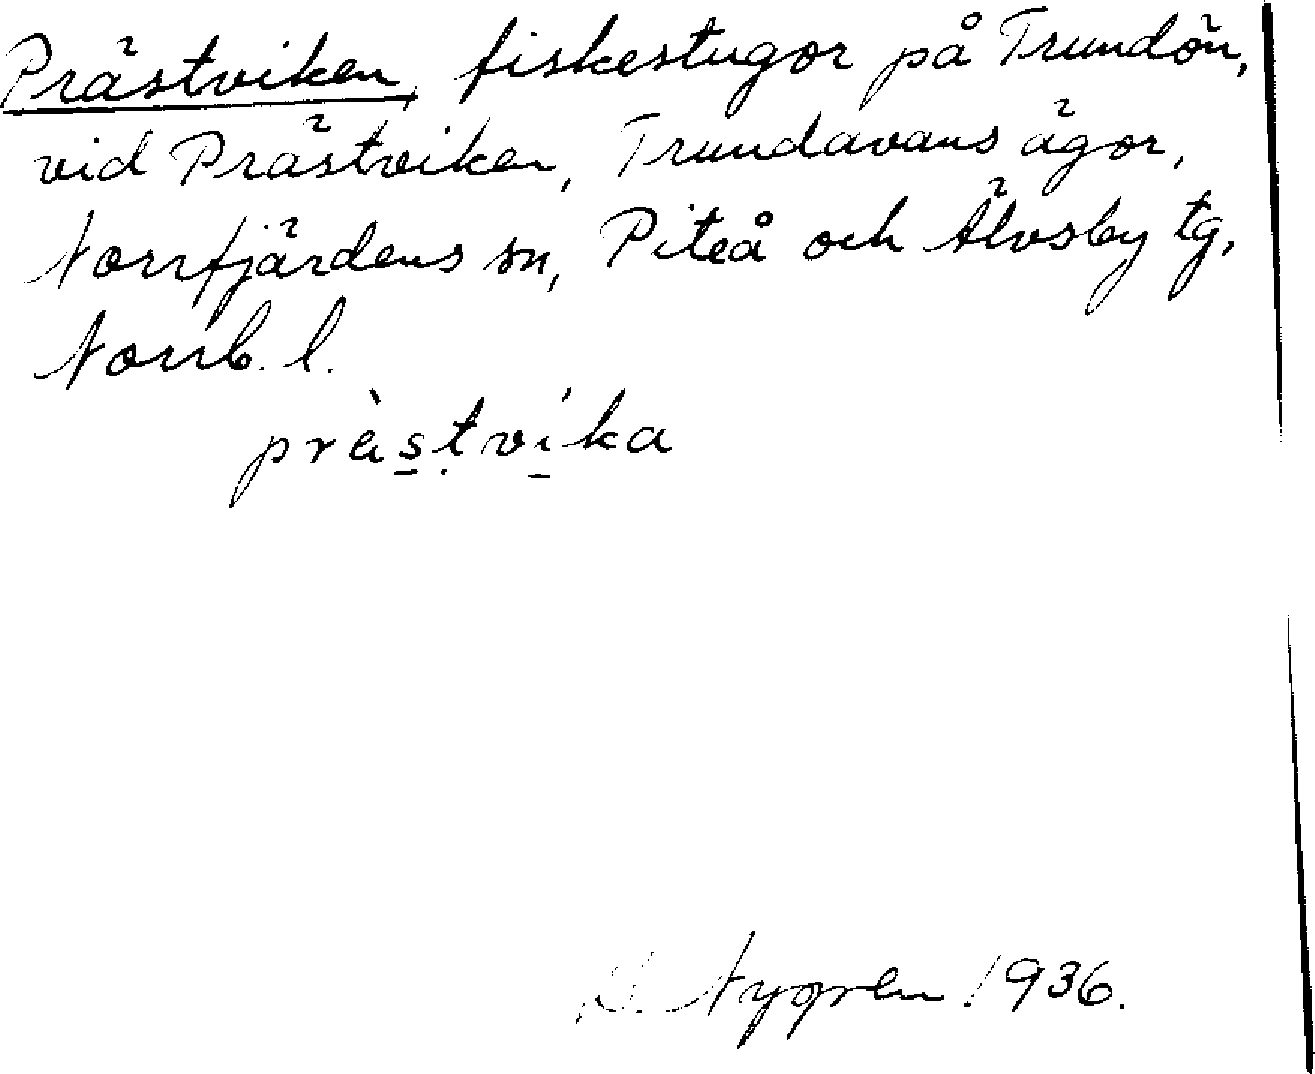 Prästviken, fiskestugor på Trundön,
vid Prästviken, Trundavans ägor,
Norrfjärdens sn, Piteå och Älvsby tg,
Norrb. l.
prä̀s̲ṭvi̲ka
Nygren 1936.